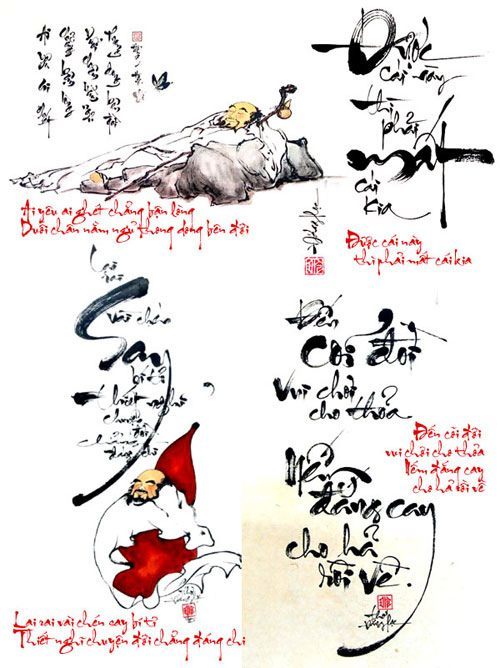 Được
cái này
thì phải
mất
cái
kia
Ai yêu ai ghét chẳng bận lòng
Duỗi chân nằm ngủ thong dong bên đồi
Được cái này
thì phải mất cái kia
Lai
rai
vài chén
Say
bí tỉ
thiết nghĩ
chuyện
đời
chẳng
đáng chi
Đến
cõi đời
vui chơi
cho thỏa
Nếm
đắng cay
cho hả
rồi về.
Đến cõi đời
vui chơi cho thỏa
Nếm đắng cay
cho hả rồi về
Lai rai vài chén say bí tỉ
Thiết nghĩ chuyện đời chẳng đáng chi